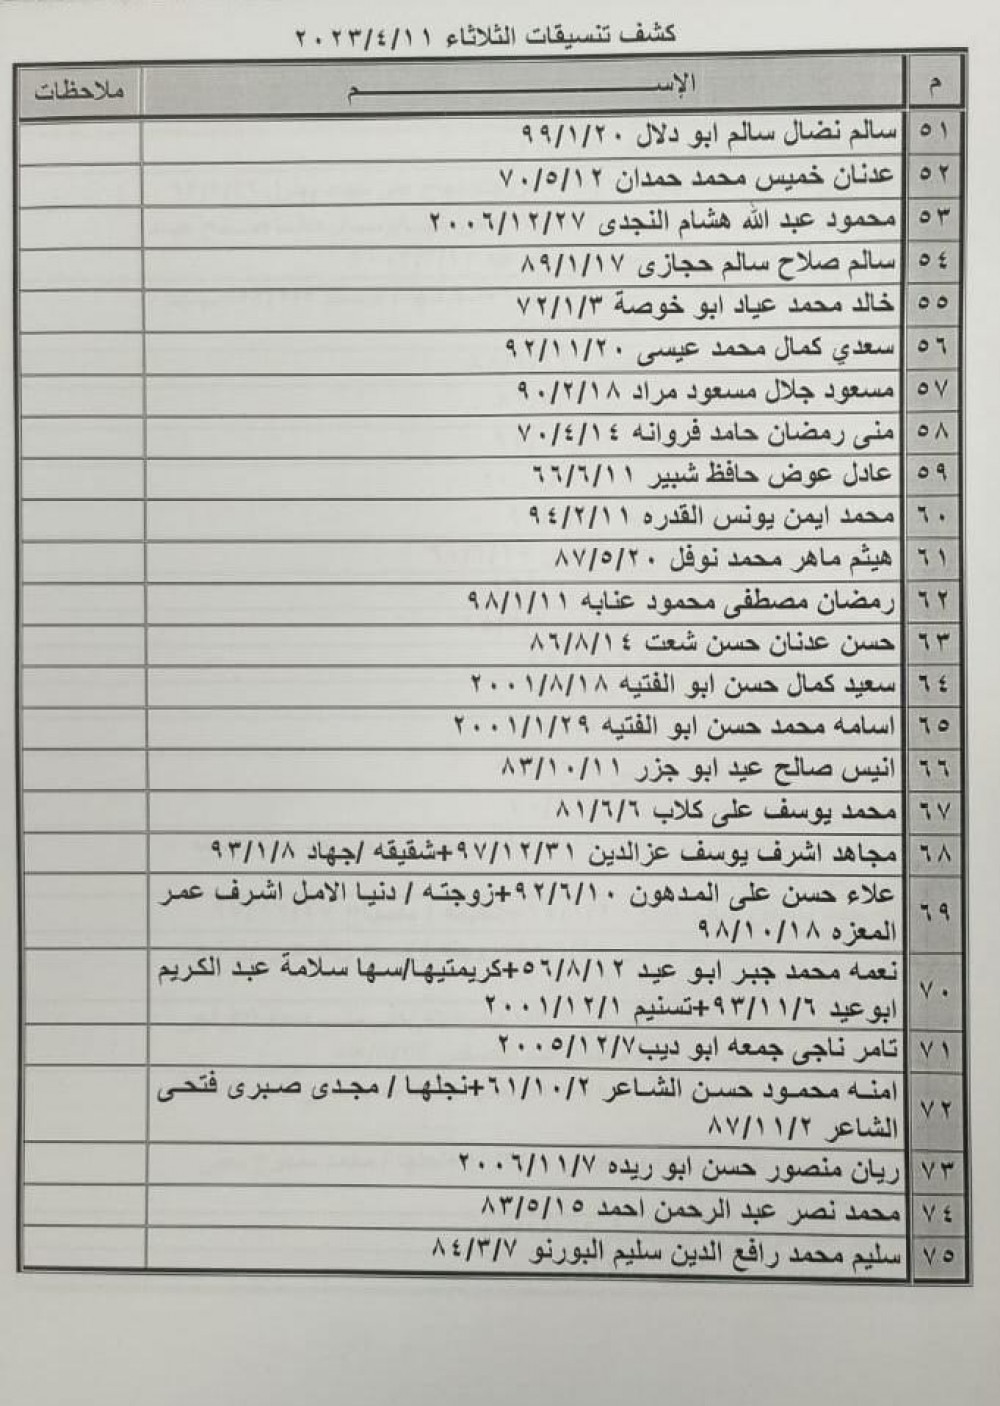 كشف تنسيقات الثلاثاء ٢٠٢٣/٤/١١
م الإســـــــم ملاحظات
٥١ سالم نضال سالم ابو دلال ٩٩/١/٢٠
٥٢ عدنان خميس محمد حمدان ٧٠/٥/١٢
٥٣ محمود عبد الله هشام النجدى ٢٠٠٦/١٢/٢٧
٥٤ سالم صلاح سالم حجازى ٨٩/١/١٧
٥٥ خالد محمد عياد ابو خوصة ٧٢/١/٣
٥٦ سعدي كمال محمد عيسى ٩٢/١١/٢٠
٥٧ مسعود جلال مسعود مراد ٩٠/٢/١٨
٥٨ منى رمضان حامد فروانه ٧٠/٤/١٤
٥٩ عادل عوض حافظ شبير ٦٦/٦/١١
٦٠ محمد ايمن يونس القدره ٩٤/٢/١١
٦١ هيثم ماهر محمد نوفل ٨٧/٥/٢٠
٦٢ رمضان مصطفى محمود عنابه ٩٨/١/١١
٦٣ حسن عدنان حسن شعت ٨٦/٨/١٤
٦٤ سعيد كمال حسن ابو الفتيه ٢٠٠١/٨/١٨
٦٥ اسامه محمد حسن ابو الفتيه ٢٠٠١/١/٢٩
٦٦ انيس صالح عيد ابو جزر ٨٣/١٠/١١
٦٧ محمد يوسف على كلاب ٨١/٦/٦
٦٨ مجاهد اشرف يوسف عزالدين ٩٧/١٢/٣١+شقيقه /جهاد ٩٣/١/٨
٦٩ علاء حسن على المدهون ٩٢/٦/١٠+زوجته / دنيا الامل اشرف عمر
المعزه ٩٨/١٠/١٨
٧٠ نعمه محمد جبر ابو عيد ٥٦/٨/١٢+كريمتيها/سها سلامة عبد الكريم
ابوعيد ٩٣/١١/٦+تسنيم ٢٠٠١/١٢/١
٧١ تامر ناجى جمعه ابو ديب٢٠٠٥/١٢/٧
٧٢ امنه محمود حسن الشاعر ٦١/١٠/٢+نجلها / مجدى صبرى فتحى
الشاعر ٨٧/١١/٢
٧٣ ريان منصور حسن ابو ريده ٢٠٠٦/١١/٧
٧٤ محمد نصر عبد الرحمن احمد ٨٣/٥/١٥
٧٥ سليم محمد رافع الدين سليم البورنو ٨٤/٣/٧